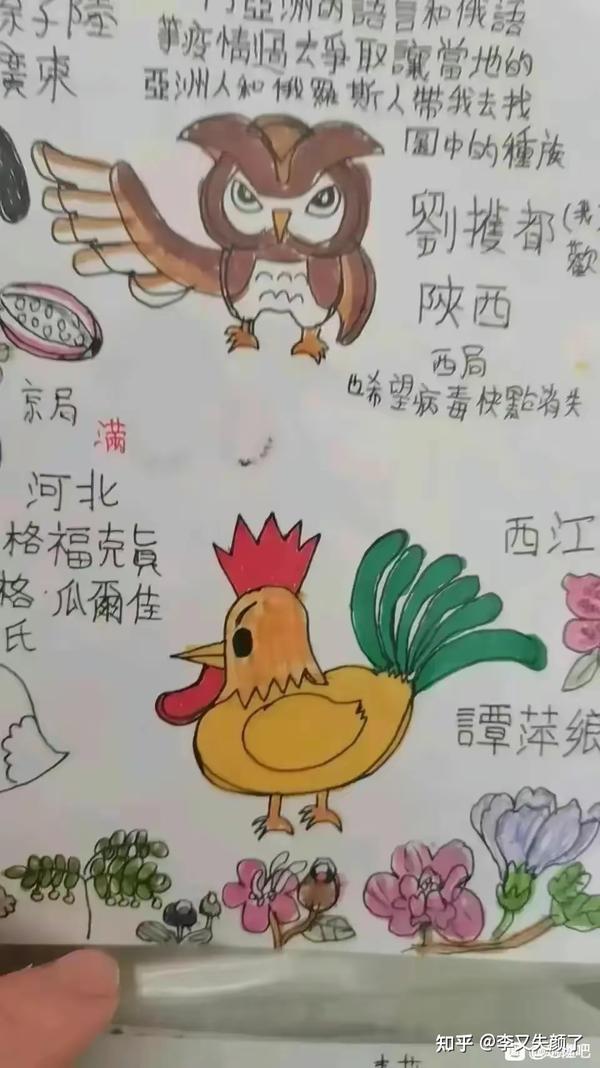 亞洲的語言和俄語
疫情過去爭取讓當地的
亞洲人和俄羅斯人帶我去找
圖中的種族
廣東
劉擭都(我
歡
陝西
西局
希望病毒快點消失
京局
滿
河北
格福克眞
格·瓜爾佳
氏
西江
譚萍
知乎 @李又失颜了